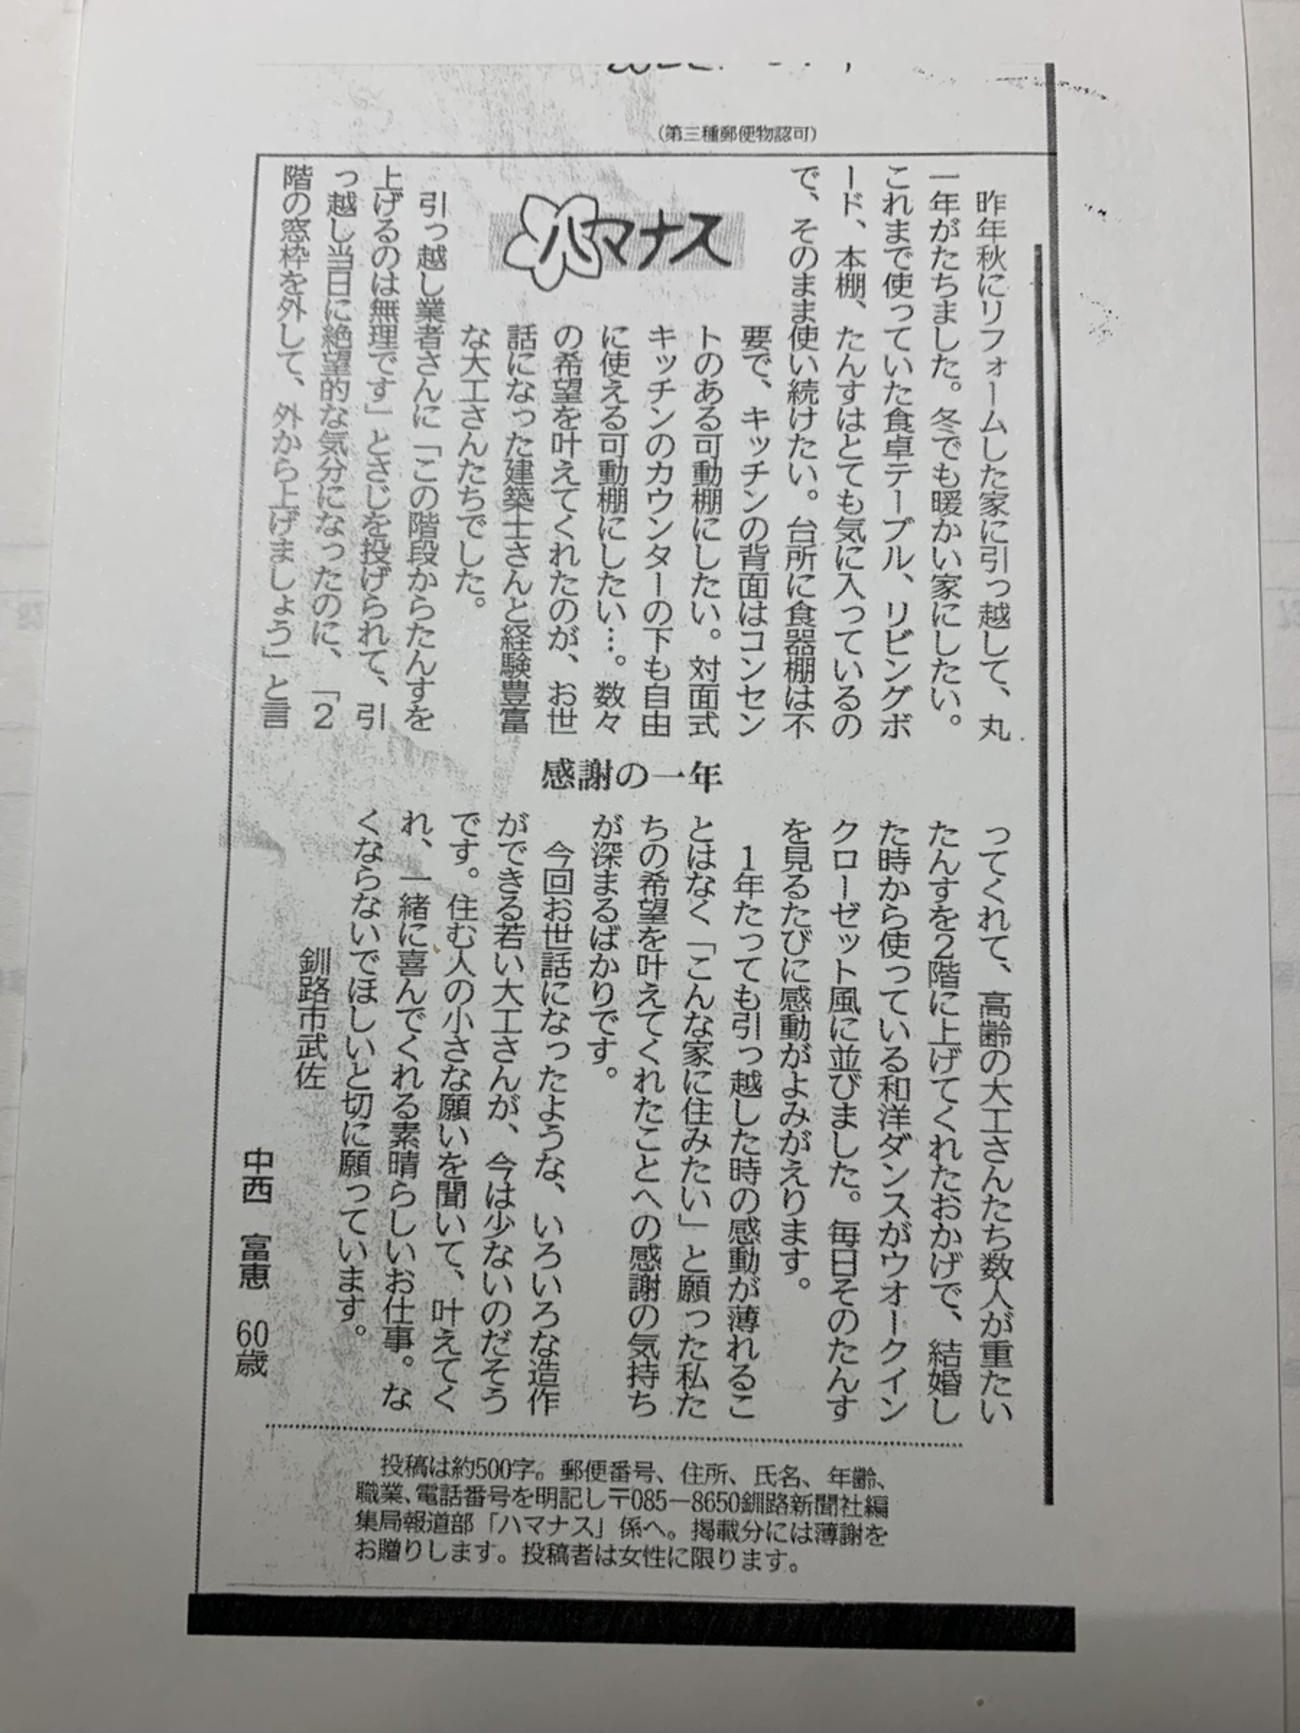 （第三種郵便物認可）
ハマナス
昨年秋にリフォームした家に引っ越して、丸
一年がたちました。冬でも暖かい家にしたい。
これまで使っていた食卓テーブル、リビングボ
ード、本棚、たんすはとても気に入っているの
で、そのまま使い続けたい。台所に食器棚は不
要で、キッチンの背面はコンセン
トのある可動棚にしたい。対面式
キッチンのカウンターの下も自由
に使える可動棚にしたい…。数々
の希望を叶えてくれたのが、お世
話になった建築士さんと経験豊富
な大工さんたちでした。
引っ越し業者さんに「この階段からたんすを
上げるのは無理です」とさじを投げられて、引
っ越し当日に絶望的な気分になったのに、「2
階の窓枠を外して、外から上げましょう」と言
感謝の一年
ってくれて、高齢の大工さんたち数人が重たい
たんすを2階に上げてくれたおかげで、結婚し
た時から使っている和洋ダンスがウオークイン
クローゼット風に並びました。毎日そのたんす
を見るたびに感動がよみがえります。
1年たっても引っ越した時の感動が薄れるこ
とはなく「こんな家に住みたい」と願った私た
ちの希望を叶えてくれたことへの感謝の気持ち
が深まるばかりです。
今回お世話になったような、いろいろな造作
ができる若い大工さんが、今は少ないのだそう
です。住む人の小さな願いを聞いて、叶えてく
れ、一緒に喜んでくれる素晴らしいお仕事。な
くならないでほしいと切に願っています。
釧路市武佐
中西　富恵　60歳
投稿は約500字。郵便番号、住所、氏名、年齢、
職業、電話番号を明記し〒085－8650釧路新聞社編
集局報道部「ハマナス」係へ。掲載分には薄謝を
お贈りします。投稿者は女性に限ります。